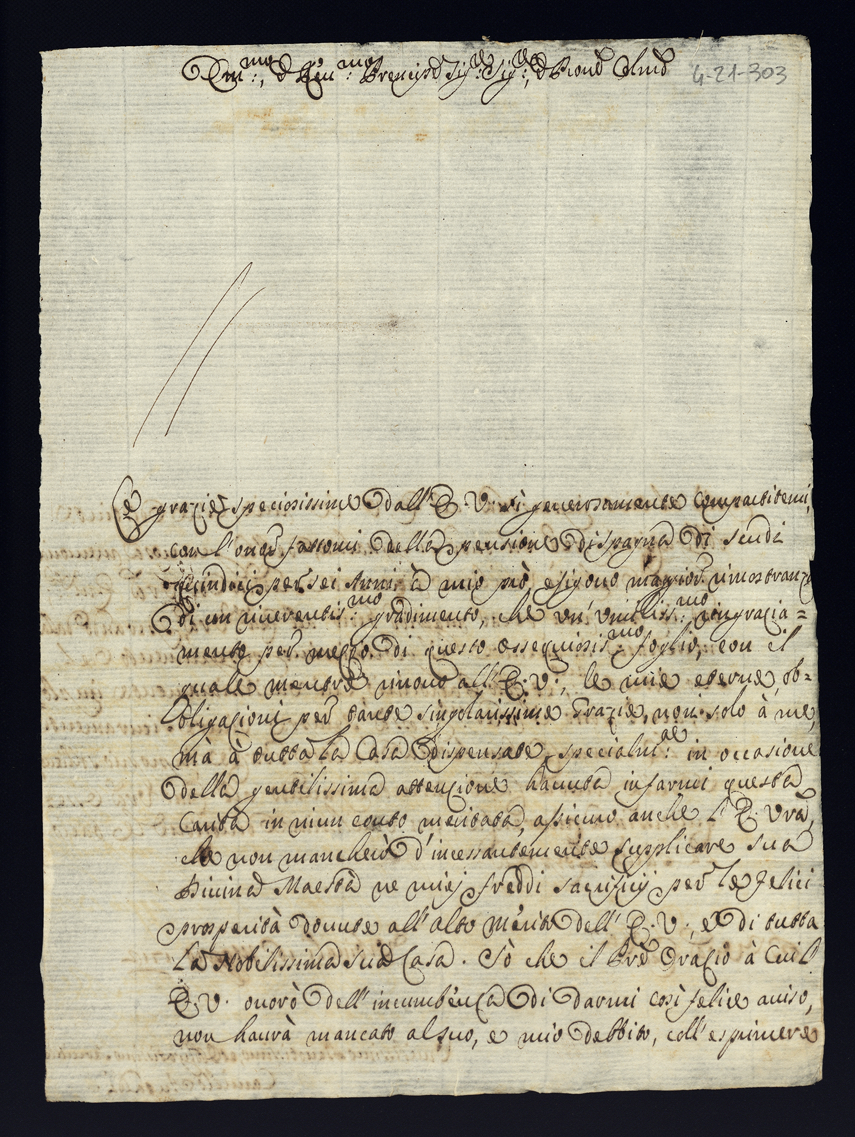 Em:mo, e Rev:mo Prencipe Sig:re Sig:re, e Pron Colmo
4-21-303
Le grazie speciosissime dall'E. V. sì generosamente compartitemi,
con l'onor fattomi della pensione di Spagna di scudi
quindici per sei Anni, à mio prò esigono maggior rimostranza
di un riverentis:mo gradimento, che un' umiliss:mo ringrazia=
mento per mezzo di questo ossequiosis:mo foglio, con il
quale mentre rinovo all'E. V:, le mie eterne, ob=
obligazioni per tante singolarissime Grazie, non solo à me,
mà à tutta la Casa dispensate, specialm:te in occasione
della gentilissima attenzione havuta in farmi questa
Carità in niun conto meritata, assicuro anche l'E. Vra,
che non mancherò d'incessantemente supplicare Sua
Divina Maestà ne miej freddi sacrificij per le felici
prosperità dovute all'alto merito dell'E. V:, e di tutta
la Nobilissima sua Casa. Sò che il Pre Orazio à Cui l'
E. V. onorò dell'incumbenza di darmi così felice aviso,
non haurà mancato al suo, e mio debbito, coll'esprimere